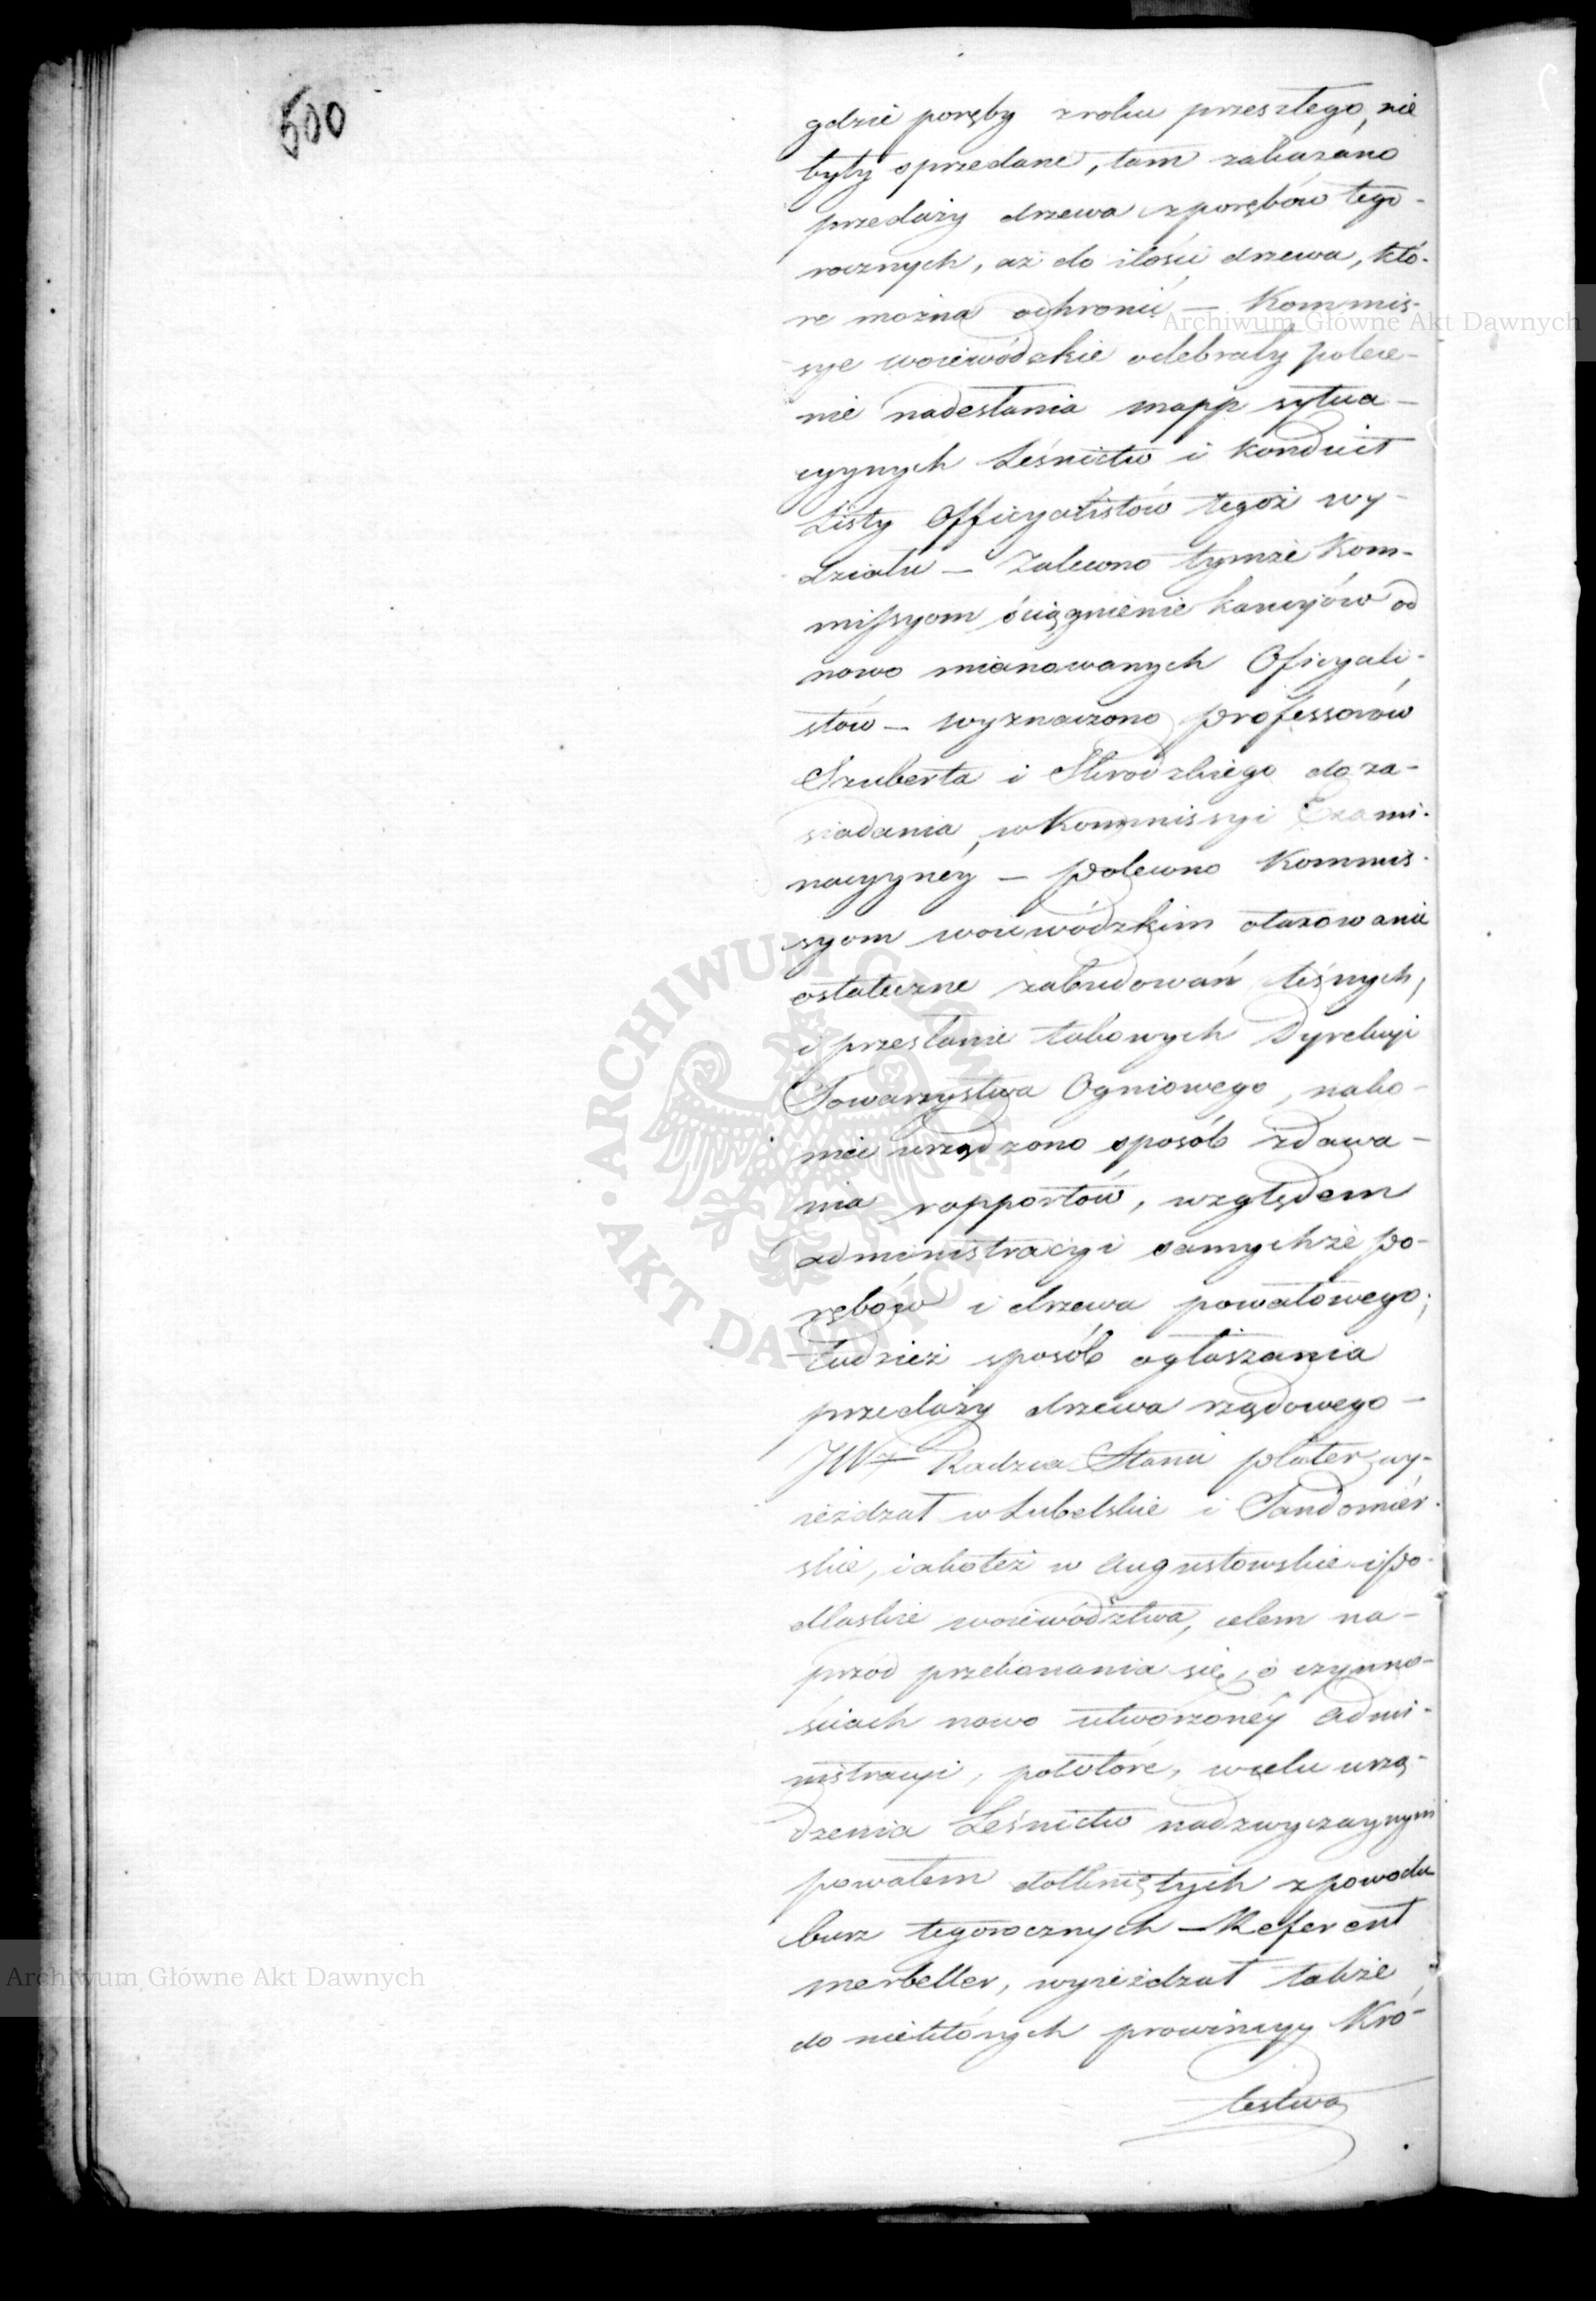 500
gdzie poręby z roku przeszłego, nie
były sprzedane, tam zakazano
przedaży drzewa z porębów tego-
rocznych, aż do ilości drzewa, któ-
re można ochronić — Kommis-
sye woiewódzkie odebrały polece-
nie nadesłania mapp sytua-
cyynych Leśnictw i konduit
Listy Officyalistów tegoż wy-
działu — Zalecono tymże Kom-
missyom ściągnienie kaucyów od
nowo mianowanych Oficyali-
stów — wyznaczono professorów
Szuberta i Skrodzkiego do za-
siadania, w Kommissyi Exami-
nacyyney — polecono Kommis-
syom woiewódzkim otaxowanie
ostateczne zabudowań leśnych,
i przesłanie takowych Dyrekcyi
Towarzystwa Ogniowego, nako-
niec urządzono sposób zdawa-
nia rapportów, względem
administracyi samychże po-
rębów i drzewa powałowego;
tudzież sposób ogłaszania
przedaży drzewa rządowego —
JW Radzca Stanu plater wy-
ieżdzał w Lubelskie i Sandomier-
skie, iakoteż w Augustowskie i po-
dlaskie woiewództwa, celem na-
przód przekonania się, o czynno-
ściach nowo utworzoney admi-
nistracyi, powtóre, w celu urzą-
dzenia Leśnictw nadzwyczaynym
powałem dotkniętych z powodu
burz tegorocznych — Referent
merbeller, wyieżdzał także
do niektórych prowincyy Kró-
lestwa
Archiwum Główne Akt Dawnych
Archiwum Główne Akt Dawnych
ARCHIWUM GŁÓWNE AKT DAWNYCH